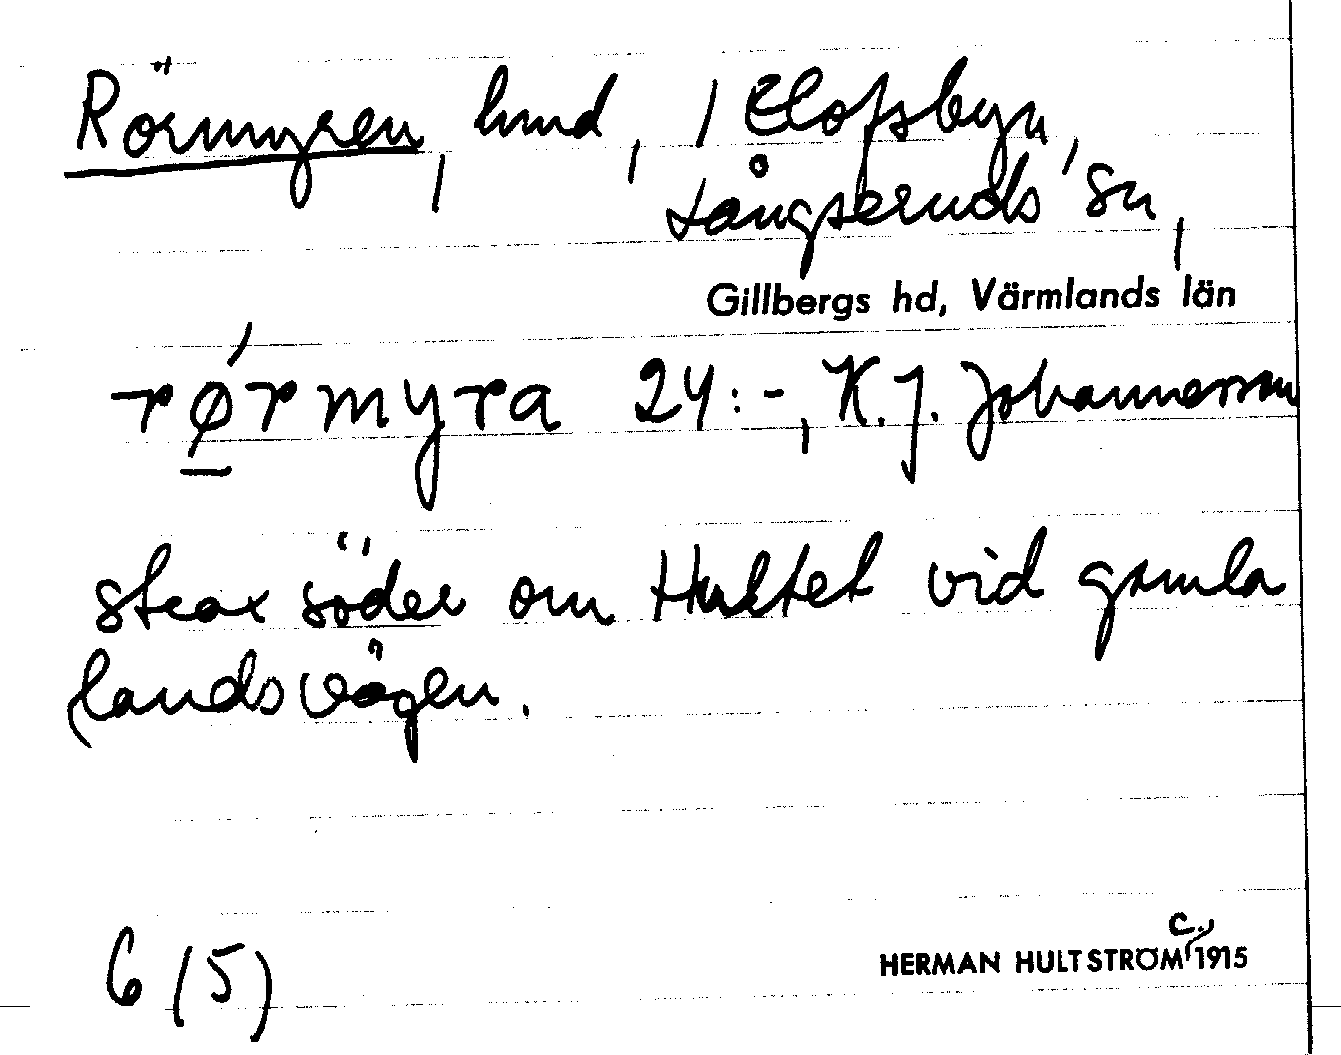 Rörmyren, lund, / Elofsbyn,
Långseruds sn,
Gillbergs hd, Värmlands län
rǿ̱rmyra 24:-, K.J. Johannesson
strax söder om Hultet vid gamla
landsvägen.
6 (5)
HERMAN HULTSTRÖM c., 1915